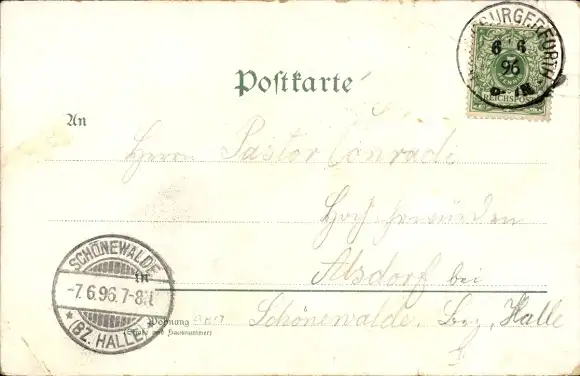 Postkarte
An
Herrn Pastor Conradi
Hochehrwürden
Alsdorf bei
in
Schönewalde, Bez. Halle
Wohnung
(Straße und Hausnummer)
6 6
96
REICHSPOST
SCHÖNEWALDE
-7.6.96.7-8N.
* (BZ. HALLE) *